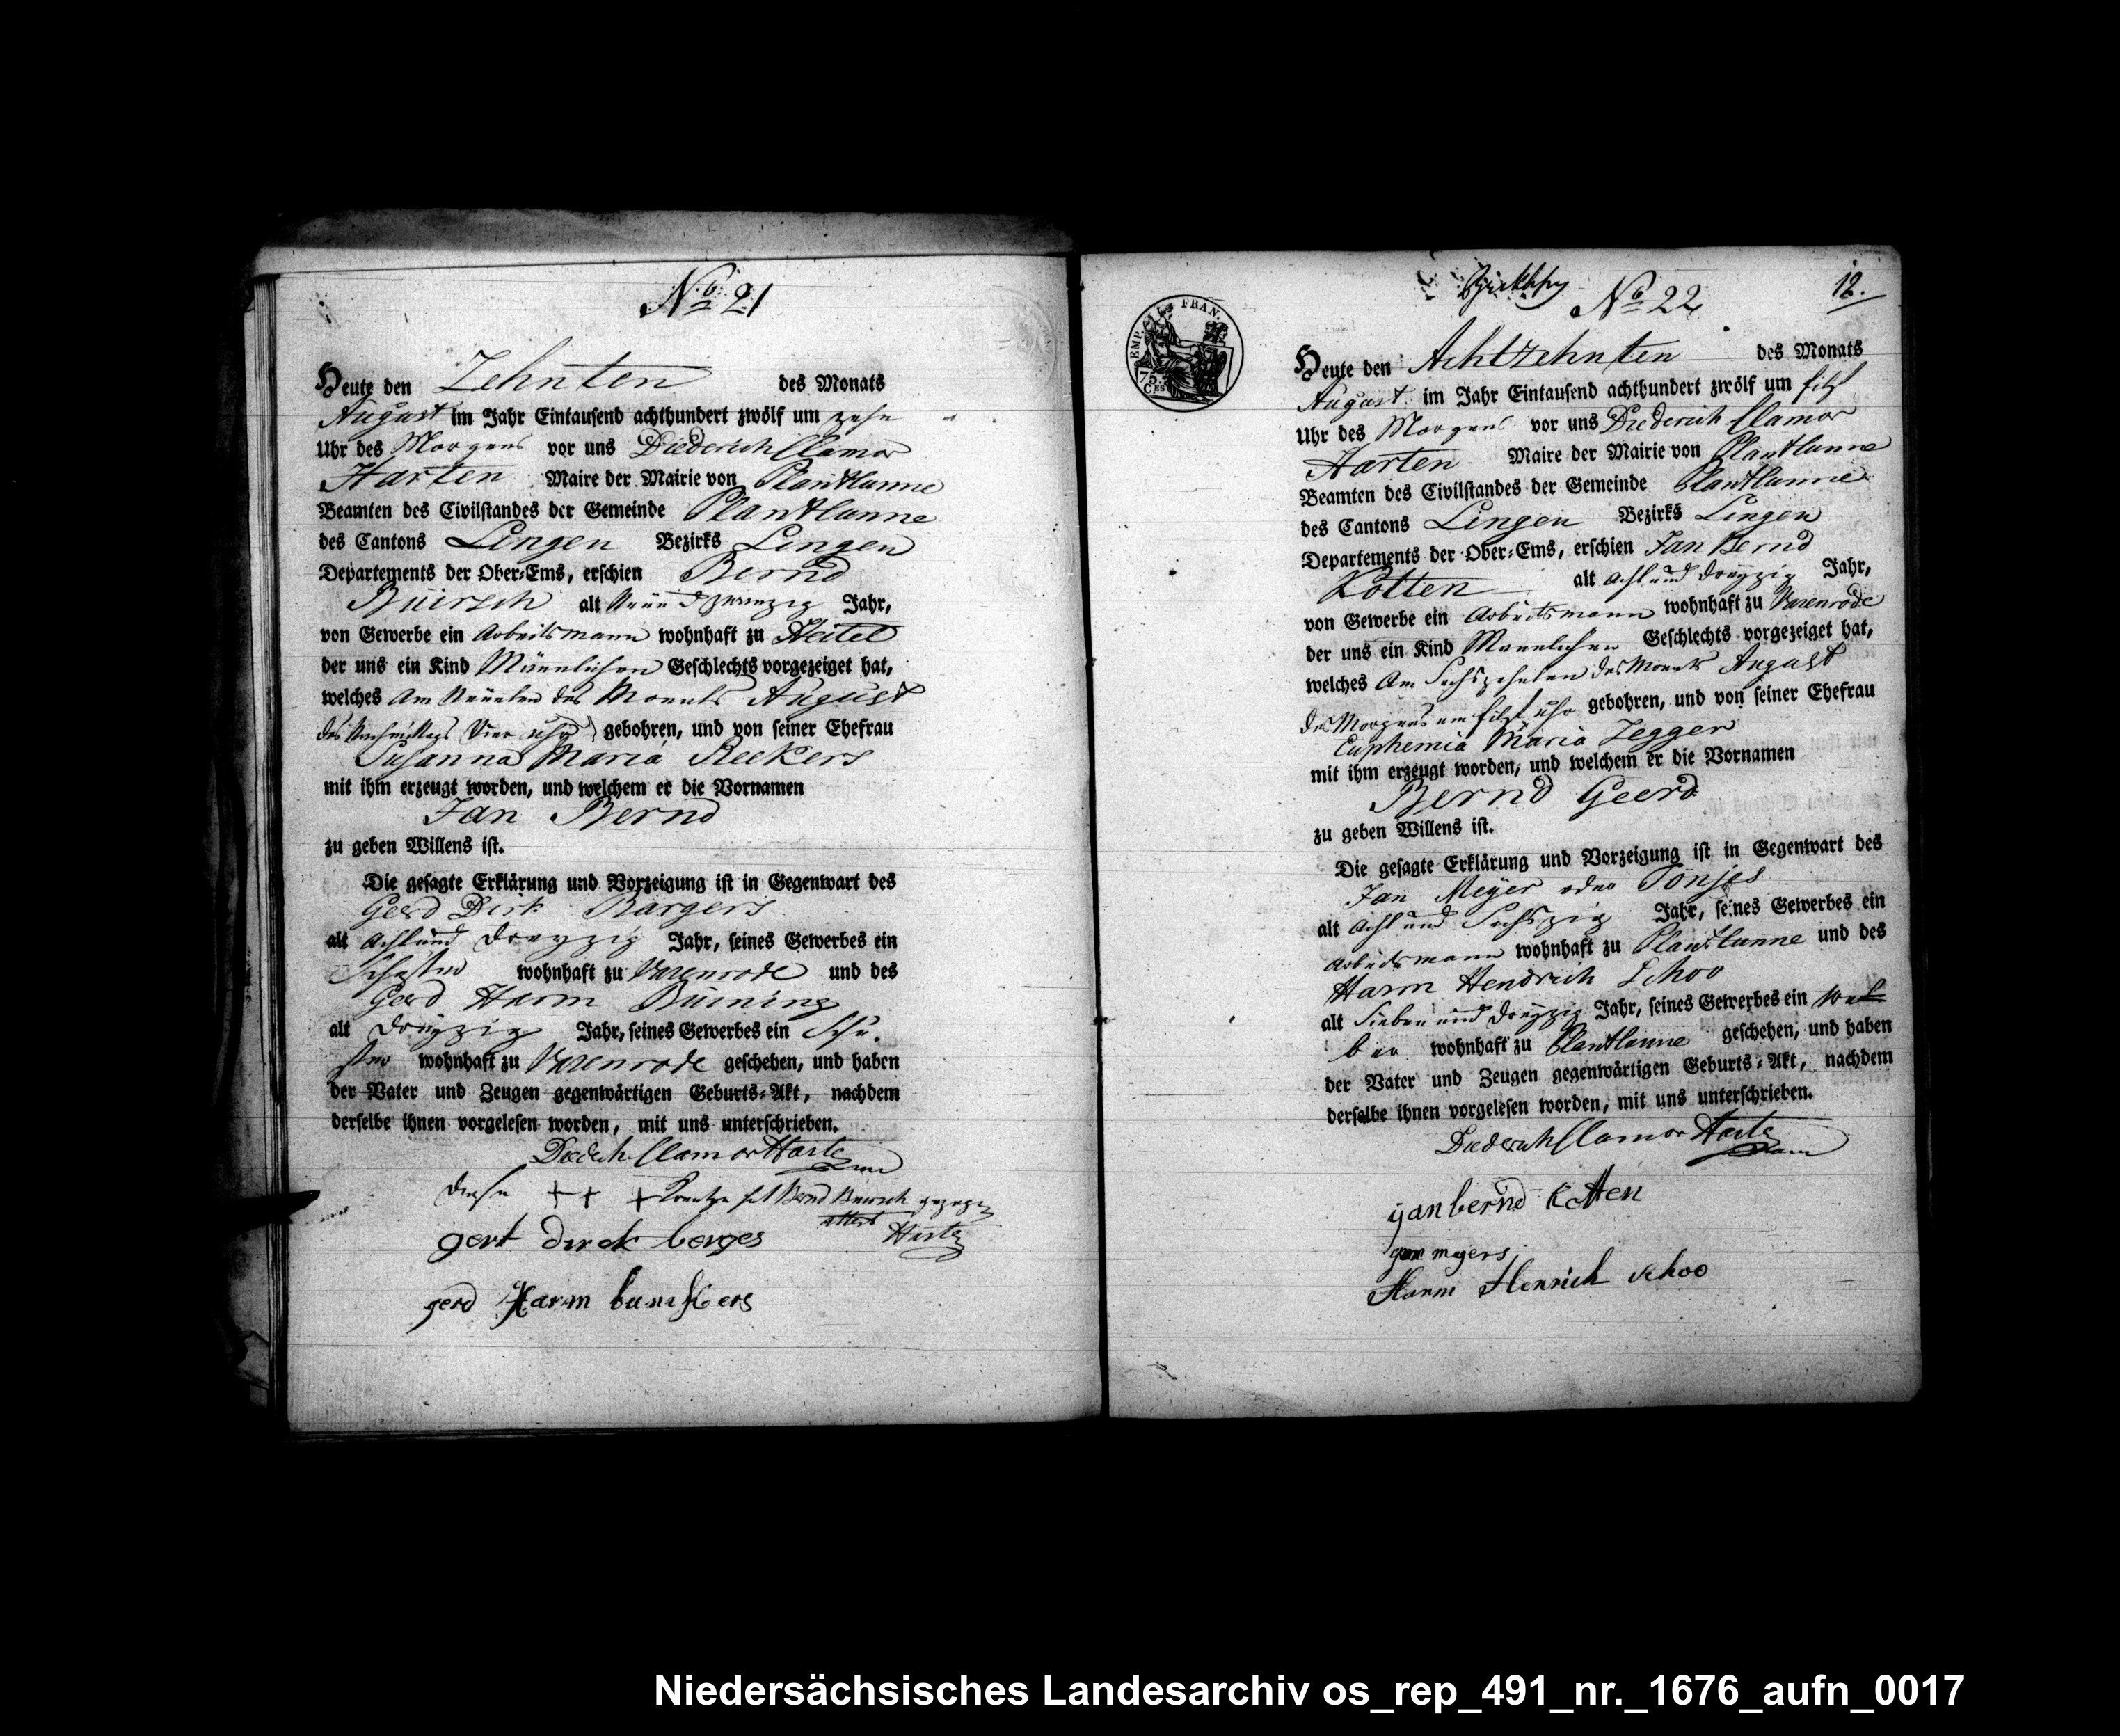 No 21
Heute den Zehnten des Monats
August im Jahr Eintausend achthundert zwölf um zehn
Uhr des Morgens vor uns Diederich Clamor
Harten Maire der Mairie von Plantlunne
Beamten des Civilstandes der Gemeinde Plantlunne
des Cantons Lingen Bezirks Lingen
Departements der Ober-Ems, erschien Bernd
Büirsch alt Neün d zwanzig Jahr,
von Gewerbe ein Arbeitsmann wohnhaft zu Heitel
der uns ein Kind Männlichen Geschlechts vorgezeiget hat,
welches Am Neünten des Monats August
des Nachmittags Vier uhr gebohren, und von seiner Ehefrau
Susanna Maria Reekers
mit ihm erzeugt worden, und welchem er die Vornamen
Jan Bernd
zu geben Willens ist.
Die gesagte Erklärung und Vorzeigung ist in Gegenwart des
Gerd Dirk Bargers
alt Acht und Dreyzig Jahr, seines Gewerbes ein
Schuster wohnhaft zu Varenrode und des
Gerd Harm Büining
alt Dreyzig Jahr, seines Gewerbes ein Schu-
ster wohnhaft zu Varenrode geschehen, und haben
der Vater und Zeugen gegenwärtigen Geburts-Akt, nachdem
derselbe ihnen vorgelesen worden, mit uns unterschrieben.
Diederich Clamor Harten
Diese + + + Kreutze hat Bernd Buirsch gezogen
attest
Harten
gert dirck berges
gerd Harm
No 22
12.
EMP. FRAN.
75
CES
Heute den Achtzehnten des Monats
August im Jahr Eintausend achthundert zwölf um Eilf
Uhr des Morgens vor uns Diederich Clamor
Harten Maire der Mairie von Plantlunne
Beamten des Civilstandes der Gemeinde Plantlunne
des Cantons Lingen Bezirks Lingen
Departements der Ober-Ems, erschien Jan Bernd
Kotten alt Acht und Dreyzig Jahr,
von Gewerbe ein Arbeitsmann wohnhaft zu Varenrode
der uns ein Kind Mannlichen Geschlechts vorgezeiget hat,
welches Am Sechszehnten des Monats August
des Morgens um Eilf uhr gebohren, und von seiner Ehefrau
Euphemia Maria Zegger
mit ihm erzeugt worden, und welchem er die Vornamen
Bernd Geerd
zu geben Willens ist.
Die gesagte Erklärung und Vorzeigung ist in Gegenwart des
Jan Meyer oder Tonjes
alt Acht und Sechszig Jahr, seines Gewerbes ein
Arbeitsmann wohnhaft zu Plantlunne und des
Harm Hendrich Schoo
alt Sieben und Dreyzig Jahr, seines Gewerbes ein We-
ber wohnhaft zu Plantlunne geschehen, und haben
der Vater und Zeugen gegenwärtigen Geburts-Akt, nachdem
derselbe ihnen vorgelesen worden, mit uns unterschrieben.
Diederich Clamor Harten
jan bernd Kotten
jan meyers
Harm Henrich schoo
Niedersächsisches Landesarchiv os_rep_491_nr._1676_aufn_0017